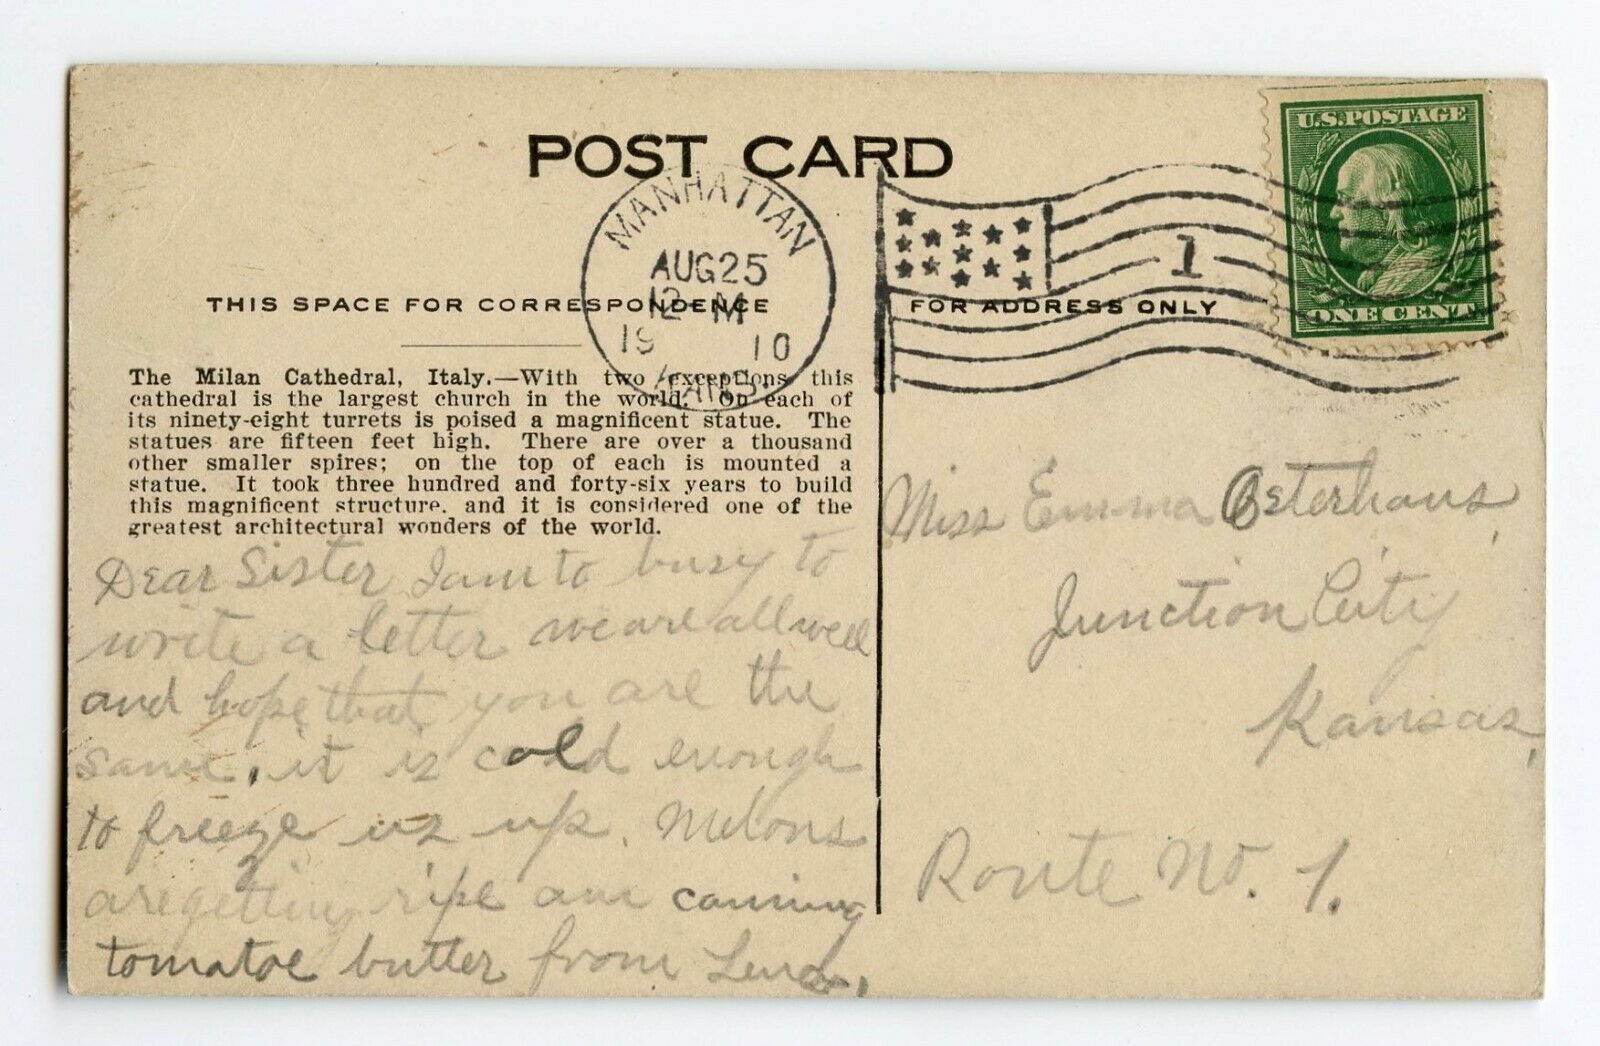 POST CARD
U.S. POSTAGE
ONE CENT
MANHATTAN
AUG 25
12 M
19 10
KANS.
1
THIS SPACE FOR CORRESPONDENCE
FOR ADDRESS ONLY
The Milan Cathedral, Italy.—With two exceptions this
cathedral is the largest church in the world. On each of
its ninety-eight turrets is poised a magnificent statue. The
statues are fifteen feet high. There are over a thousand
other smaller spires; on the top of each is mounted a
statue. It took three hundred and forty-six years to build
this magnificent structure, and it is considered one of the
greatest architectural wonders of the world.
Dear Sister I am to busy to
write a letter we are all well
and hope that you are the
same. it is cold enough
to freeze us up. Melons
are getting ripe am canning
tomatoe butter from
Miss Emma Osterhaus,
Junction City
Kansas,
Route No. 1.